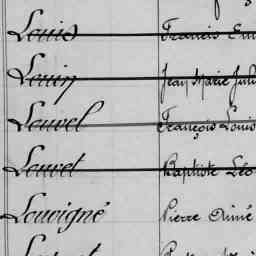 Louis Francis Em
Louin Jean Marie Juli
Louvel François Louis
Louvet Baptiste Léo
Louvigné Pierre Aimé